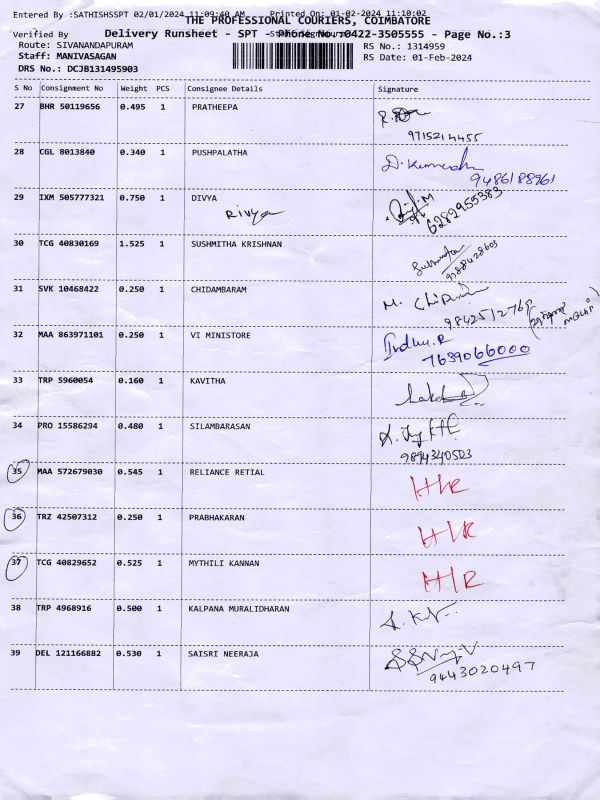 Entered By :SATHISHSSPT 02/01/2024 11:09:40 AM Printed On: 01-02-2024 11:10:02
THE PROFESSIONAL COURIERS, COIMBATORE
Verified By
Delivery Runsheet - SPT - Phone No.:0422-3505555 - Page No.:3
Route: SIVANANDAPURAM
RS No.: 1314959
Staff: MANIVASAGAN
RS Date: 01-Feb-2024
DRS No.: DCJB131495903
S No Consignment No Weight PCS Consignee Details Signature
27 BHR 50119656 0.495 1 PRATHEEPA
9715214455
28 CGL 8013840 0.340 1 PUSHPALATHA
9486188961
29 IXM 505777321 0.750 1 DIVYA
Rivya
6282955383
30 TCG 40830169 1.525 1 SUSHMITHA KRISHNAN
31 SVK 10468422 0.250 1 CHIDAMBARAM
M.
32 MAA 863971101 0.250 1 VI MINISTORE
Indhu.R
7639066000
33 TRP 5960054 0.160 1 KAVITHA
34 PRO 15586294 0.480 1 SILAMBARASAN
9894340503
35 MAA 572679030 0.545 1 RELIANCE RETIAL
H/R
36 TRZ 42507312 0.250 1 PRABHAKARAN
H/R
37 TCG 40829652 0.525 1 MYTHILI KANNAN
H/R
38 TRP 4968916 0.500 1 KALPANA MURALIDHARAN
39 DEL 121166882 0.530 1 SAISRI NEERAJA
9443020497